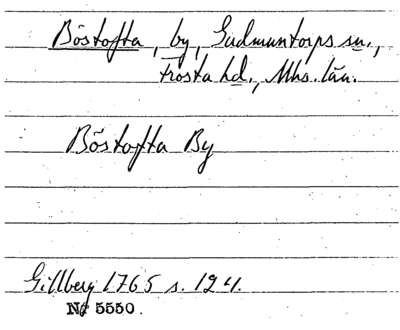 Böstofta, by, Gudmuntorps sn.,
Frosta hd., Mhs. län.
Böstofta By
Gillberg 1765 s. 124.
No 5550.